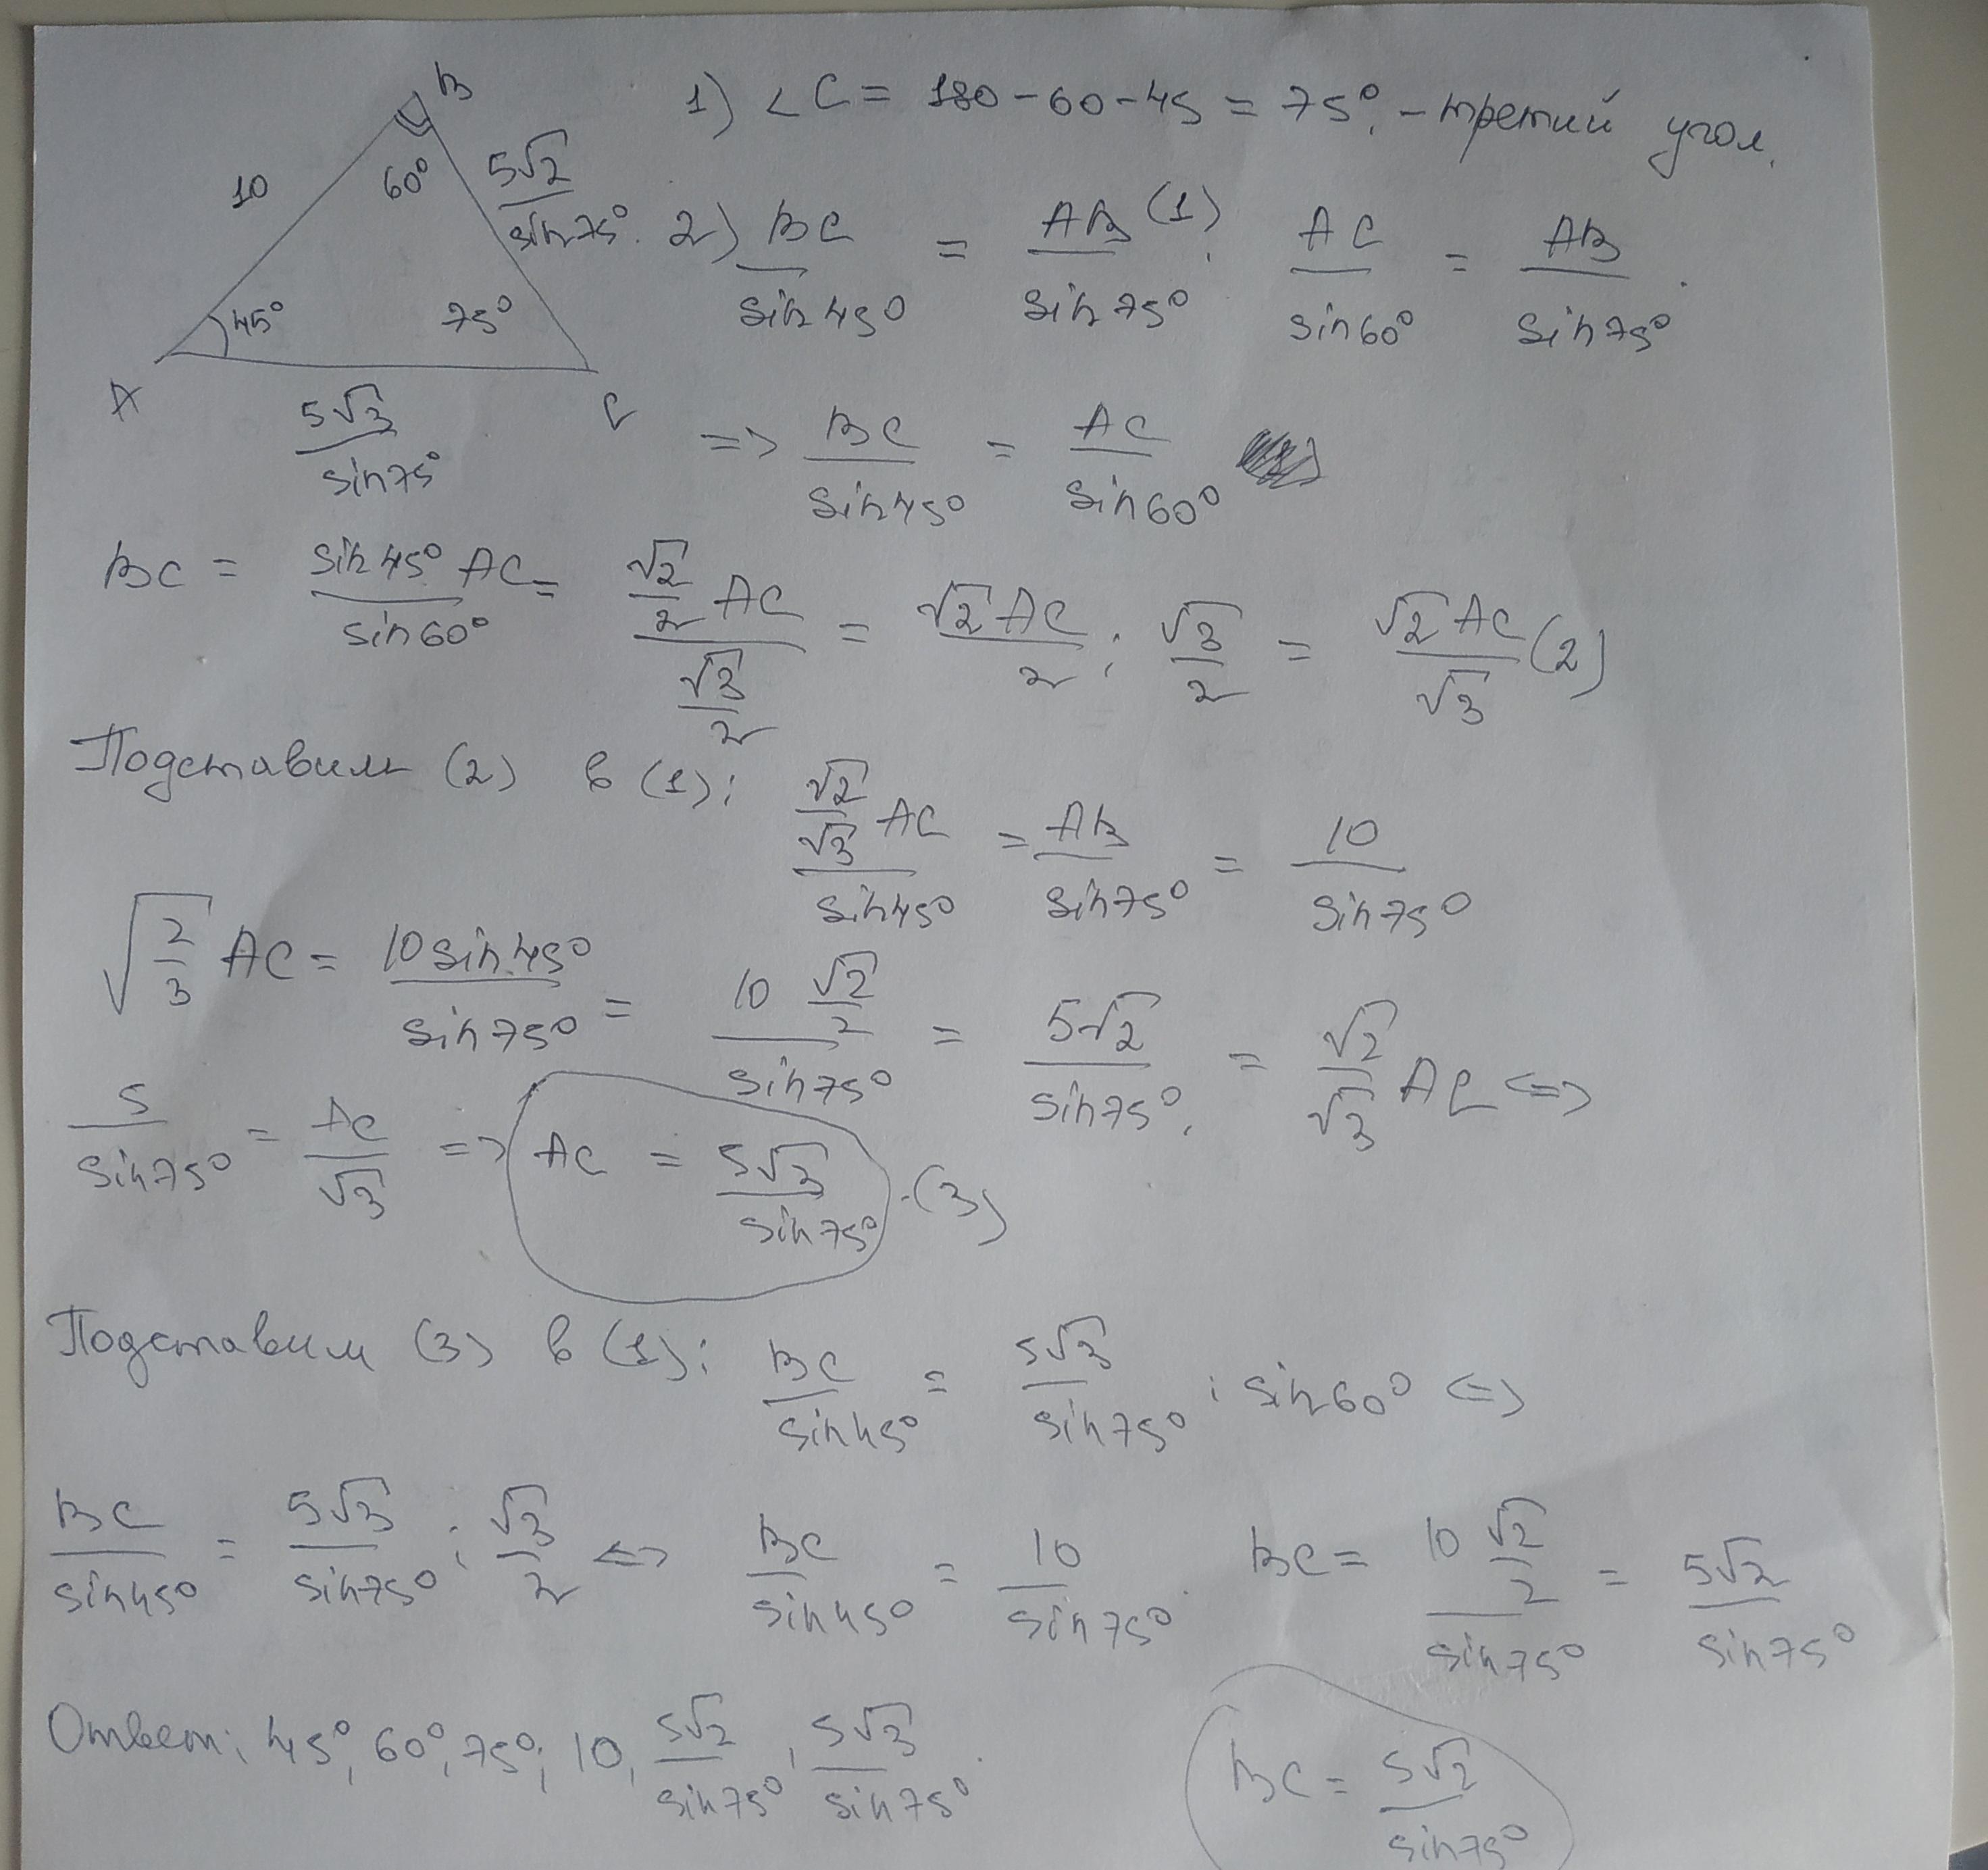 B
1) ∠C = 180 - 60 - 45 = 75°. - третий угол.
10 60° 5√2/sin75°
45° 75°
A C
5√3/sin75°
2) BC/sin45° = AB/sin75° (1). AC/sin60° = AB/sin75°.
=> BC/sin45° = AC/sin60°
BC = sin45° AC/sin60° = (√2/2 AC)/(√3/2) = √2 AC/2 : √3/2 = √2 AC/√3 (2)
Подставим (2) в (1): (√2/√3 AC)/sin45° = AB/sin75° = 10/sin75°
√(2/3) AC = 10 sin45°/sin75° = (10 √2/2)/sin75° = 5√2/sin75°. = √2/√3 AC <=>
5/sin75° = AC/√3 => AC = 5√3/sin75° . (3)
Подставим (3) в (1): BC/sin45° = 5√3/sin75° : sin60° <=>
BC/sin45° = 5√3/sin75° : √3/2 <=> BC/sin45° = 10/sin75°. BC = (10 √2/2)/sin75° = 5√2/sin75°
Ответ: 45°, 60°, 75°; 10, 5√2/sin75°, 5√3/sin75°.
BC = 5√2/sin75°